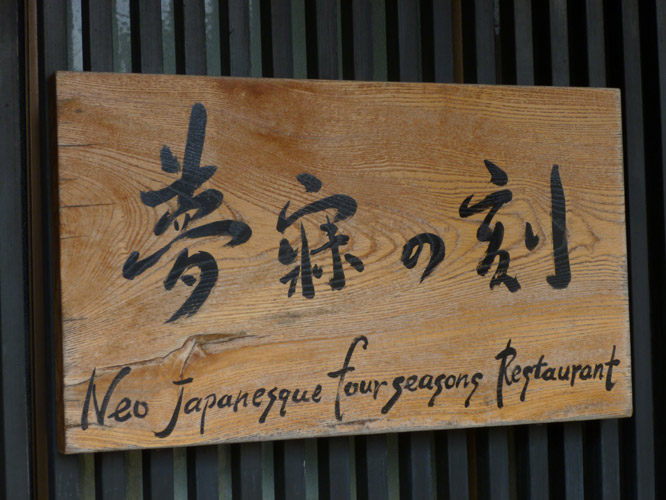 夢寐の刻
Neo Japanesque four seasons Restaurant